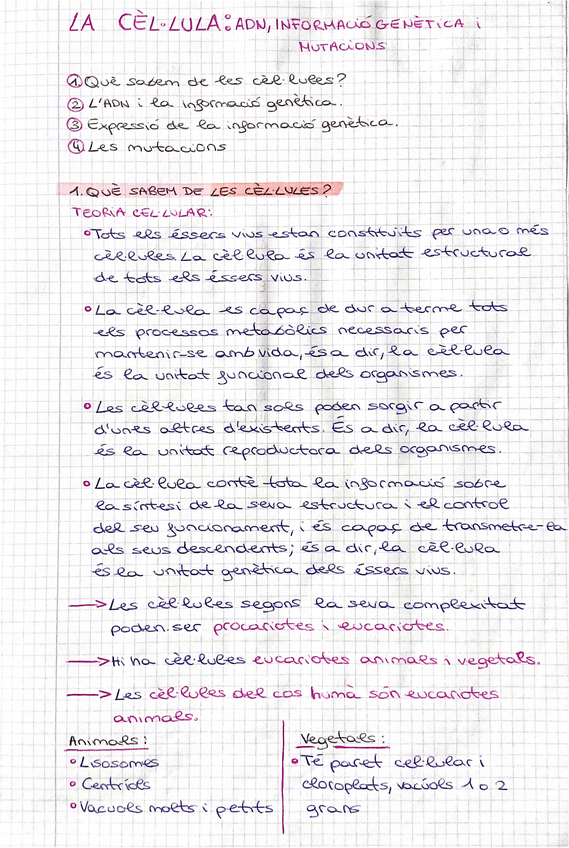 LA CÈL·LULA: ADN, INFORMACIÓ GENÈTICA i
MUTACIONS
① Què sabem de les cèl·lules?
② L'ADN i la informació genètica.
③ Expressió de la informació genètica.
④ Les mutacions
1. QUÈ SABEM DE LES CÈL·LULES?
TEORIA CEL·LULAR:
• Tots els éssers vius estan constituïts per una o més
cèl·lules. La cèl·lula és la unitat estructural
de tots els éssers vius.
• La cèl·lula es capaç de dur a terme tots
els processos metabòlics necessaris per
mantenir-se amb vida, és a dir, la cèl·lula
és la unitat funcional dels organismes.
• Les cèl·lules tan sols poden sorgir a partir
d'unes altres d'existents. És a dir, la cèl·lula
és la unitat reproductora dels organismes.
• La cèl·lula contè tota la informació sobre
la síntesi de la seva estructura i el control
del seu funcionament, i és capaç de transmetre-la
als seus descendents; és a dir, la cèl·lula
és la unitat genètica dels éssers vius.
→ Les cèl·lules segons la seva complexitat
poden ser procariotes i eucariotes.
→ Hi ha cèl·lules eucariotes animals i vegetals.
→ Les cèl·lules del cos humà són eucariotes
animals.
Animals:
• Lisosomes
• Centríols
• Vacuols molts i petits
Vegetals:
• Té paret cel·lular i
cloroplats, vacúols 1 o 2
grans